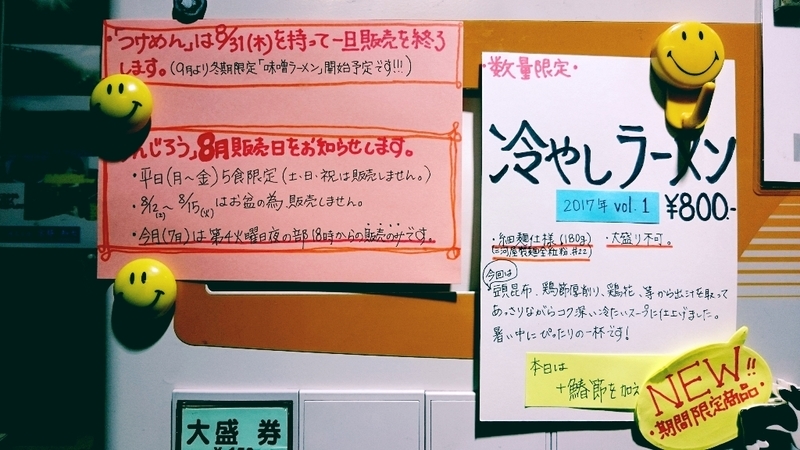 「つけめん」は8/31(木)を持って一旦販売を終了
します。(9月より冬期限定「味噌ラーメン」開始予定です!!!)
んじろう」8月販売日をお知らせします。
・平日(月〜金)5食限定(土・日・祝は販売しません。)
・8/12(土)〜8/15(火)はお盆の為、販売しません。
・今月(7月)は第4火曜日夜の部18時からの販売のみです。
・数量限定・
冷やしラーメン
2017年 vol.1
¥800.-
・細麺仕様(180g) ・大盛り不可。
今回は
頭昆布、鶏節厚削り、鶏花、等から出汁を取って
あっさりながらコク深い冷たいスープに仕上げました。
暑い中にぴったりの一杯です!
本日は
+鰆節を加え
NEW!!
・期間限定商品・
大盛 券